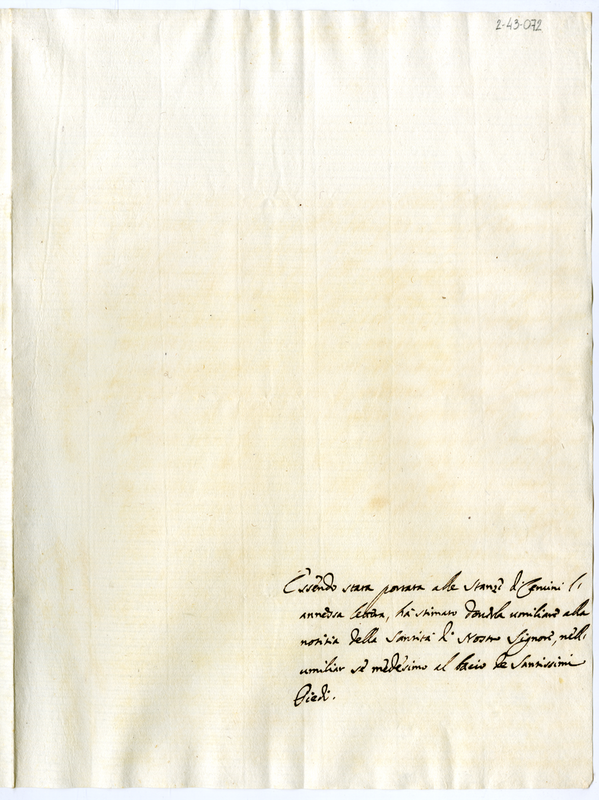 2-43-072
Essendo stata portata alle Stanze di Cenini l'
annessa lettera, hà stimato doverla umiliare alla
notitia della Santità di Nostro Signore, nell'
umiliar sè medesimo al bacio de Santissimi
Piedi.